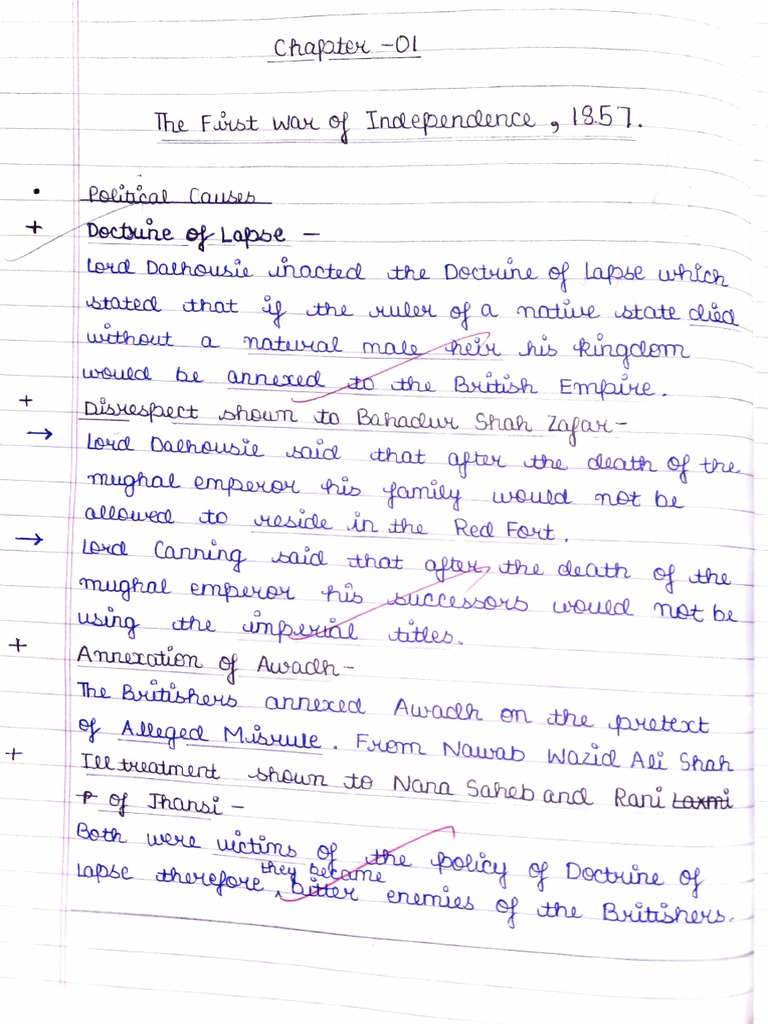 Chapter -01
The First War of Independence, 1857.
• Political Causes
+ Doctrine of Lapse -
Lord Dalhousie inacted the Doctrine of Lapse which
stated that if the ruler of a native state died
without a natural male heir his kingdom
would be annexed to the British Empire.
+ Disrespect shown to Bahadur Shah Zafar-
→ Lord Dalhousie said that after the death of the
mughal emperor his family would not be
allowed to reside in the Red Fort.
→ Lord Canning said that after the death of the
mughal emperor his successors would not be
using the imperial titles.
+ Annexation of Awadh-
The Britishers annexed Awadh on the pretext
of Alleged Misrule. From Nawab Wazid Ali Shah
+ Ill treatment shown to Nana Saheb and Rani Laxmi
of Jhansi -
Both were victims of the policy of Doctrine of
Lapse therefore, they became bitter enemies of the Britishers.